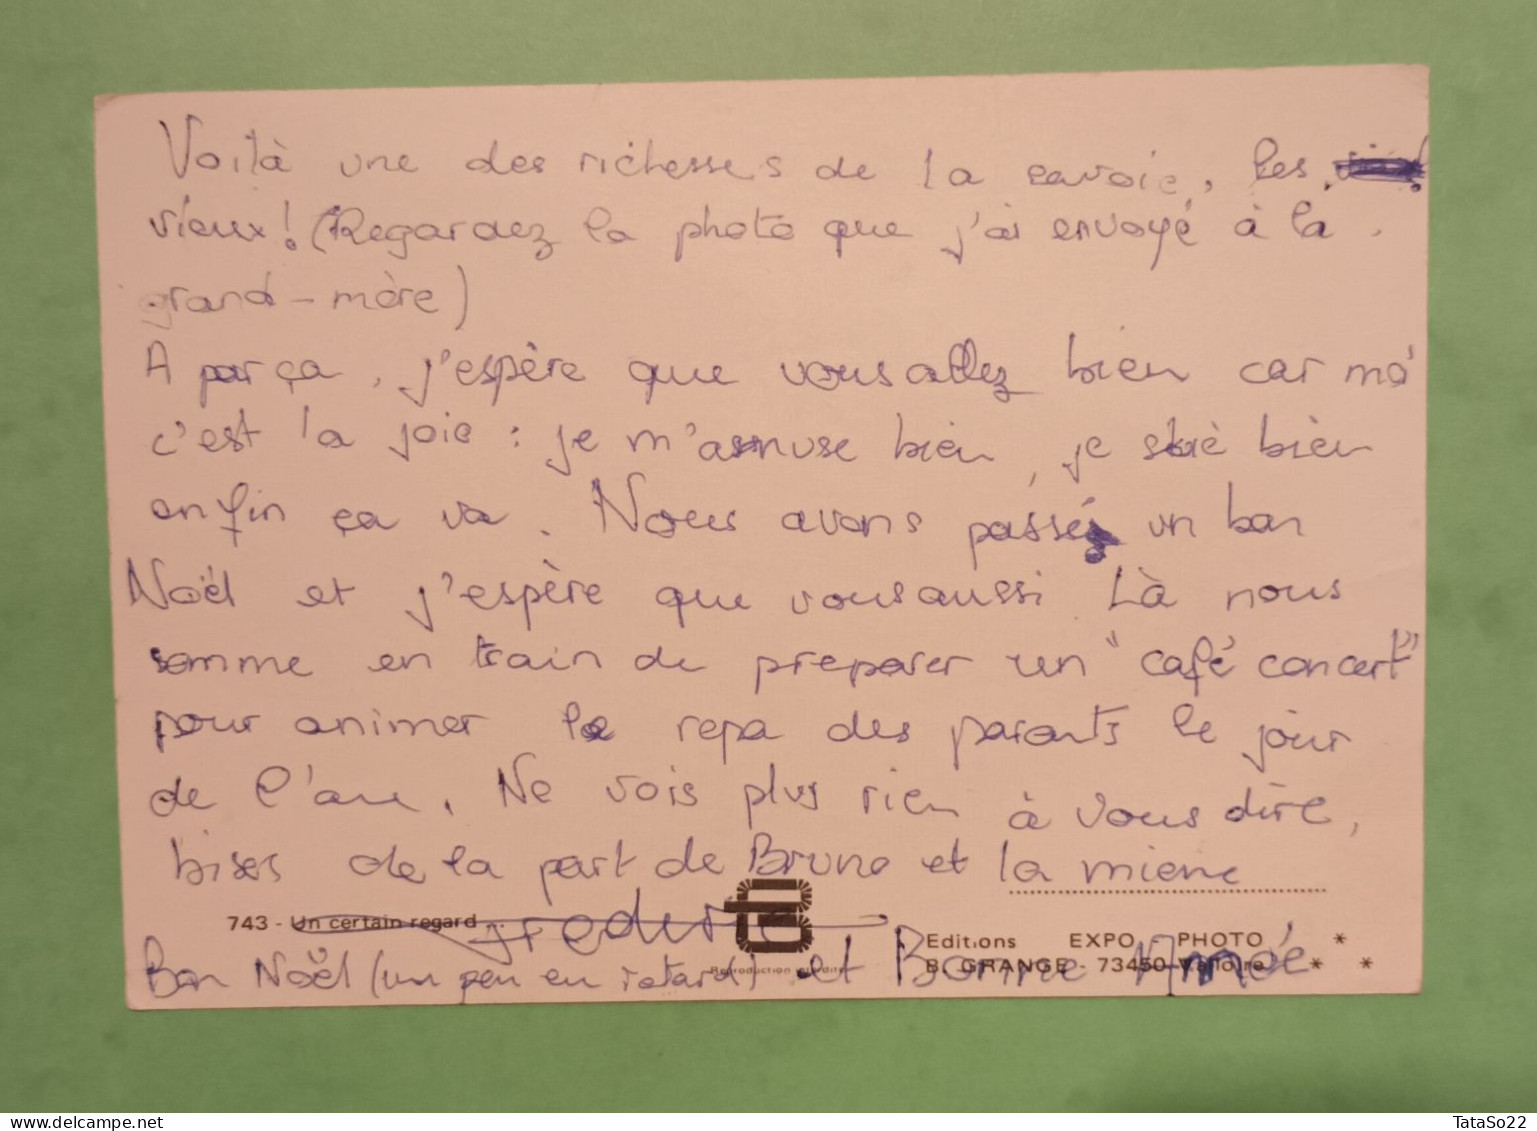 Voilà une des richesses de la savoie, les
vieux! (Regardez la photo que j'ai envoyé à la
grand-mère)
A par ça, j'espère que vous allez bien car mo
c'est la joie : je m'amuse bien, je skiè bien
enfin ça va. Nous avons passé un bon
Noël et j'espère que vous aussi Là nous
somme en train de preparer un "café concert"
pour animer le repa des parents le jour
de l'an. Ne vois plus rien à vous dire,
bises de la part de Bruno et la miene
743 - Un certain regard
Editions EXPO - PHOTO *
B. GRANGE - 73450 Valloire * *
Reproduction interdite
Bon Noël (un peu en retard) et Bonne Année
TataSo22